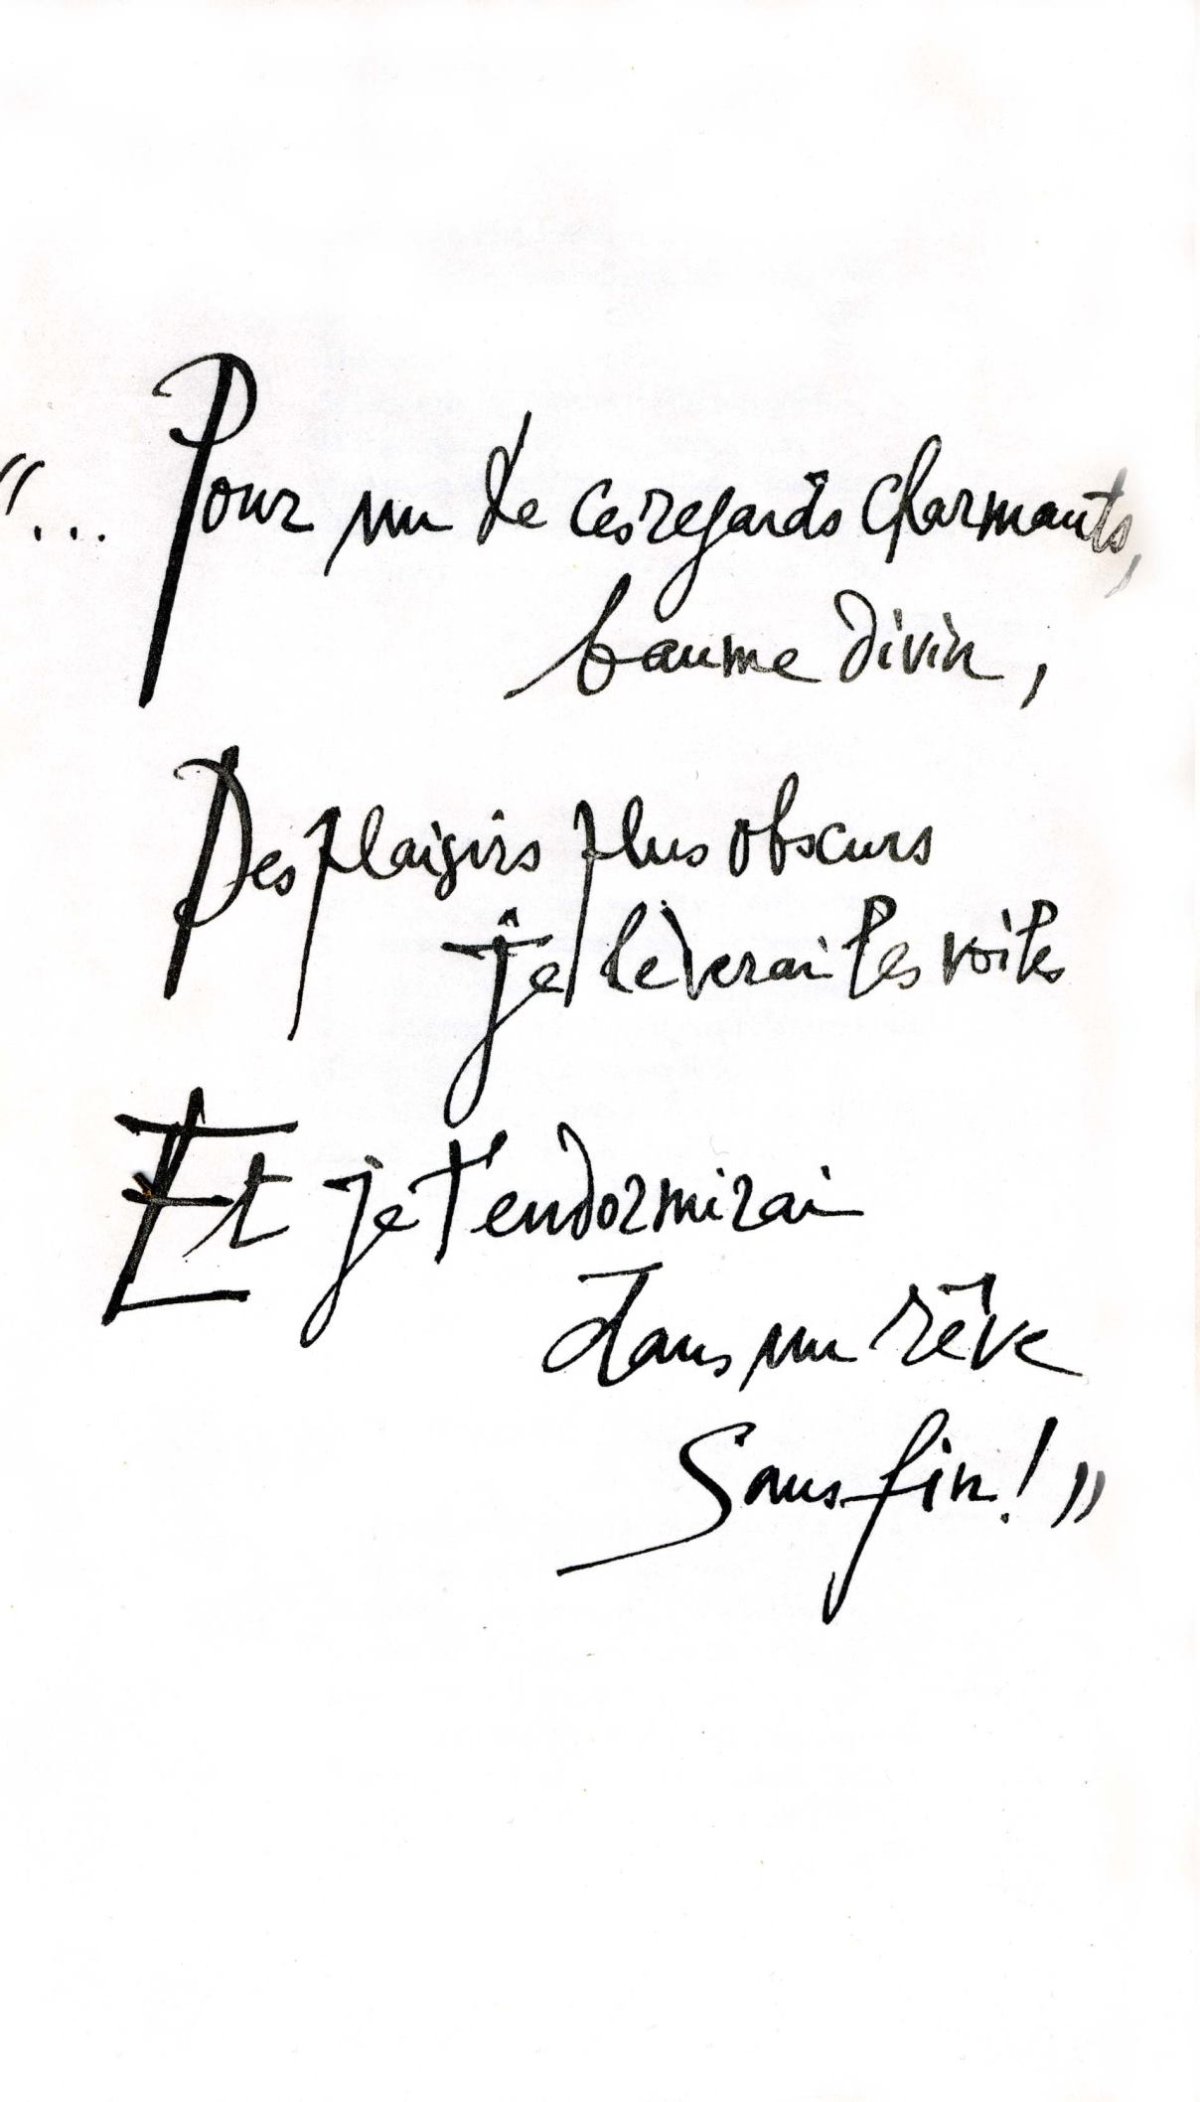 “... Pour un de ces regards charmants,
baume divin,
Des plaisirs plus obscurs
je lèverai les voiles
Et je t'endormirai
dans un rêve
Sans fin! ”